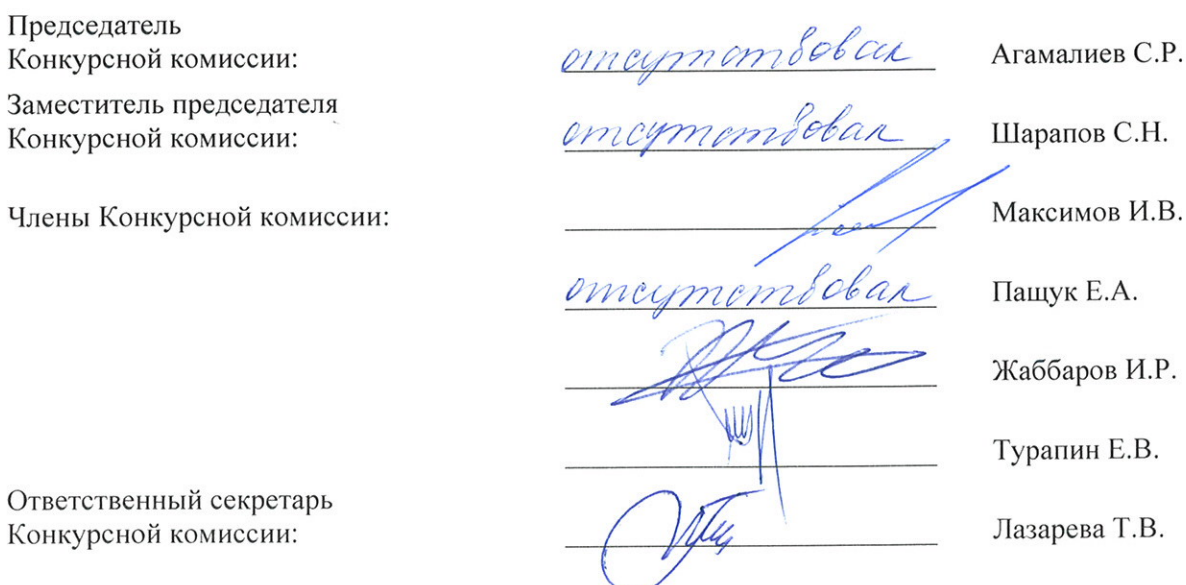 Председатель
Конкурсной комиссии: отсутствовал Агамалиев С.Р.
Заместитель председателя
Конкурсной комиссии: отсутствовал Шарапов С.Н.
Члены Конкурсной комиссии: Максимов И.В.
отсутствовал Пащук Е.А.
Жаббаров И.Р.
Турапин Е.В.
Ответственный секретарь
Конкурсной комиссии: Лазарева Т.В.